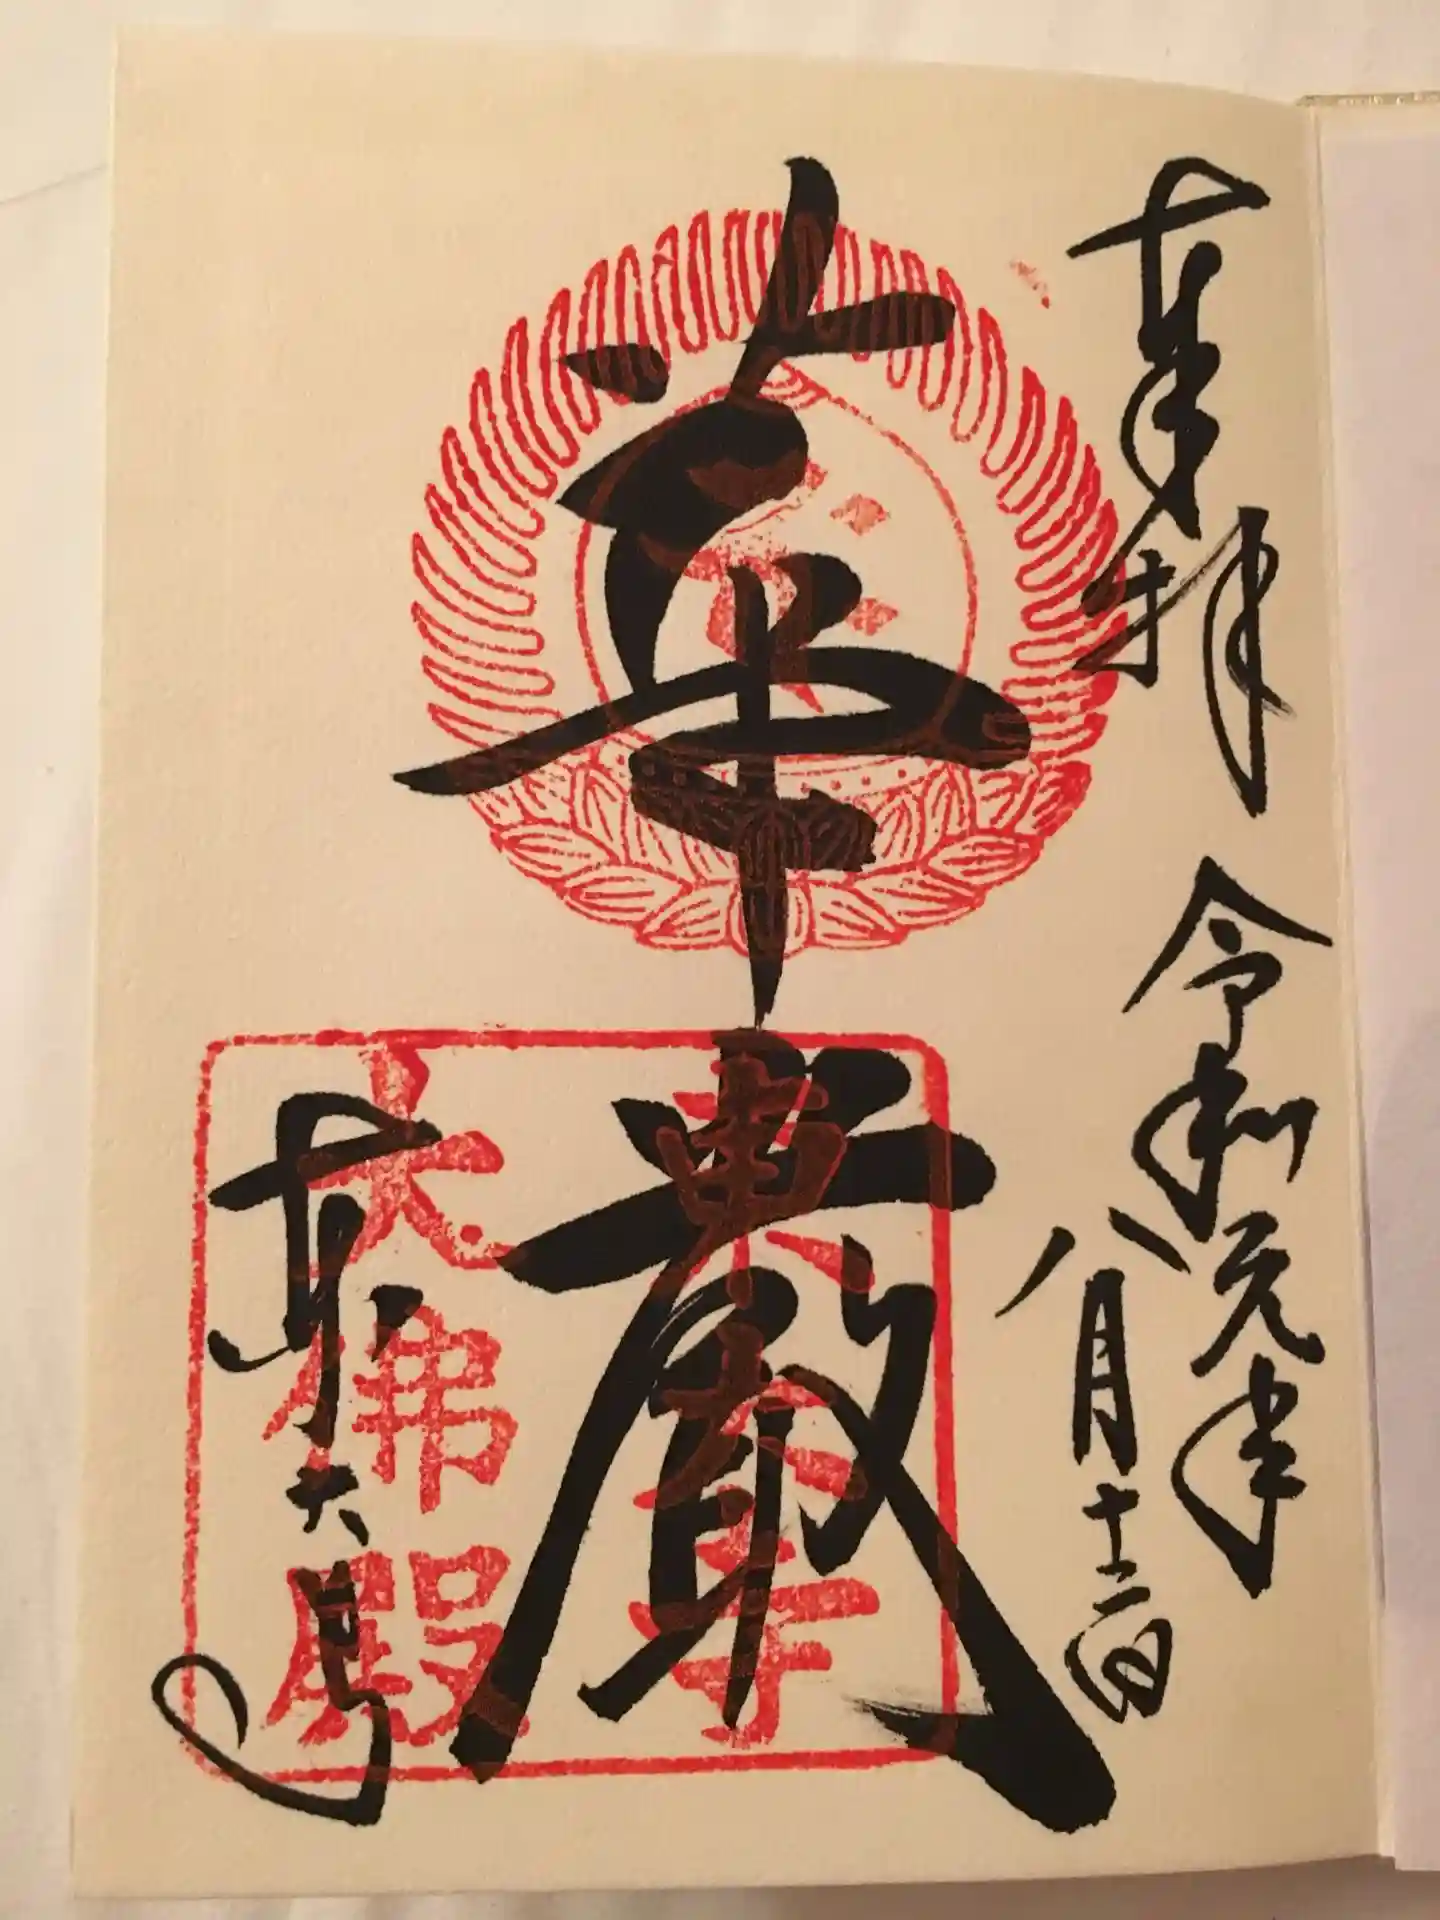 奉拝 令和元年
八月十二日
華厳
東大寺
東大寺
大佛殿